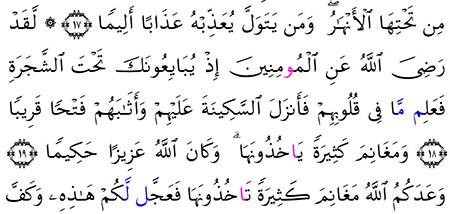 مِن تَحْتِهَا ٱلْأَنْهَٰرُ ۖ وَمَن يَتَوَلَّ يُعَذِّبْهُ عَذَابًا أَلِيمًا ﴿١٧﴾ ۞ لَّقَدْ
رَضِىَ ٱللَّهُ عَنِ ٱلْمُومِنِينَ إِذْ يُبَايِعُونَكَ تَحْتَ ٱلشَّجَرَةِ
فَعَلِم مَّا فِى قُلُوبِهِمْ فَأَنزَلَ ٱلسَّكِينَةَ عَلَيْهِمْ وَأَثَٰبَهُمْ فَتْحًا قَرِيبًا
﴿١٨﴾ وَمَغَانِمَ كَثِيرَةً يَاخُذُونَهَا ۗ وَكَانَ ٱللَّهُ عَزِيزًا حَكِيمًا ﴿١٩﴾
وَعَدَكُمُ ٱللَّهُ مَغَانِمَ كَثِيرَةً تَاخُذُونَهَا فَعَجَّل لَّكُمْ هَٰذِهِۦ وَكَفَّ